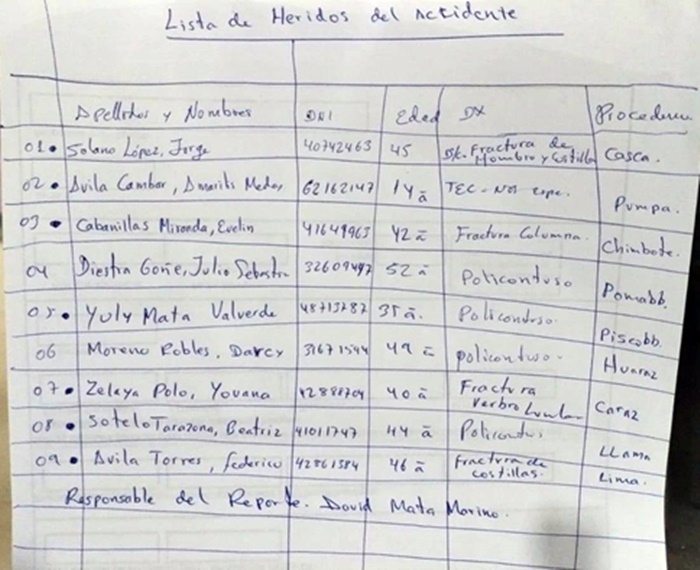 Lista de Heridos del Accidente
Apellidos y Nombres DNI Edad DX Proceden
01. Solano López, Jorge 40742463 45 Fractura de Hombro y Costilla Casca.
02. Avila Cambar, Amarilis 62162147 14 ā TEC - Pumpa.
03 . Cabanillas Miranda, Evelin 41649963 42 ā Fractura Columna. Chimbote.
04 Diestra Goñe, Julio Sebastn 32609497 52 ā Policontuso Pomabb.
05. Yuly Mata Valverde 48713287 35 ā. Policontuso. Piscobb.
06 Moreno Robles, Darcy 31671544 49 ā policontuso. Huaraz
07. Zelaya Polo, Yovana 42898704 40 ā Fractura Caraz
08. Sotelo Tarazona, Beatriz 41011747 44 ā Policontus LLama
09. Avila Torres, federico 42861384 46 ā fractura de costillas. Lima.
Responsable del Reporte. David Mata Marino.